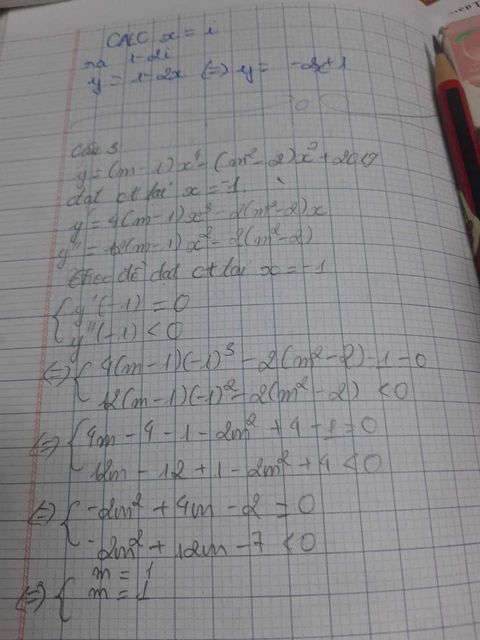 CALC x = i
ra 1-2i
y = 1-2x (=) y = -2x+1
Câu 3
y = (m-1)x⁴ - (m²-2)x² + 2019
đạt ct tại x = -1
y' = 4(m-1)x³ - 2(m²-2)x
y'' = 12(m-1)x² - 2(m²-2)
Theo đề đạt ct tại x = -1
{ y'(-1) = 0
y''(-1) < 0
(=) { 4(m-1)(-1)³ - 2(m²-2)-1 = 0
12(m-1)(-1)² - 2(m²-2) < 0
(=) { 4m - 4 - 1 - 2m² + 4 - 1 = 0
12m - 12 + 1 - 2m² + 4 < 0
(=) { -2m² + 4m - 2 = 0
-2m² + 12m - 7 < 0
(=) { m = 1
m = 1